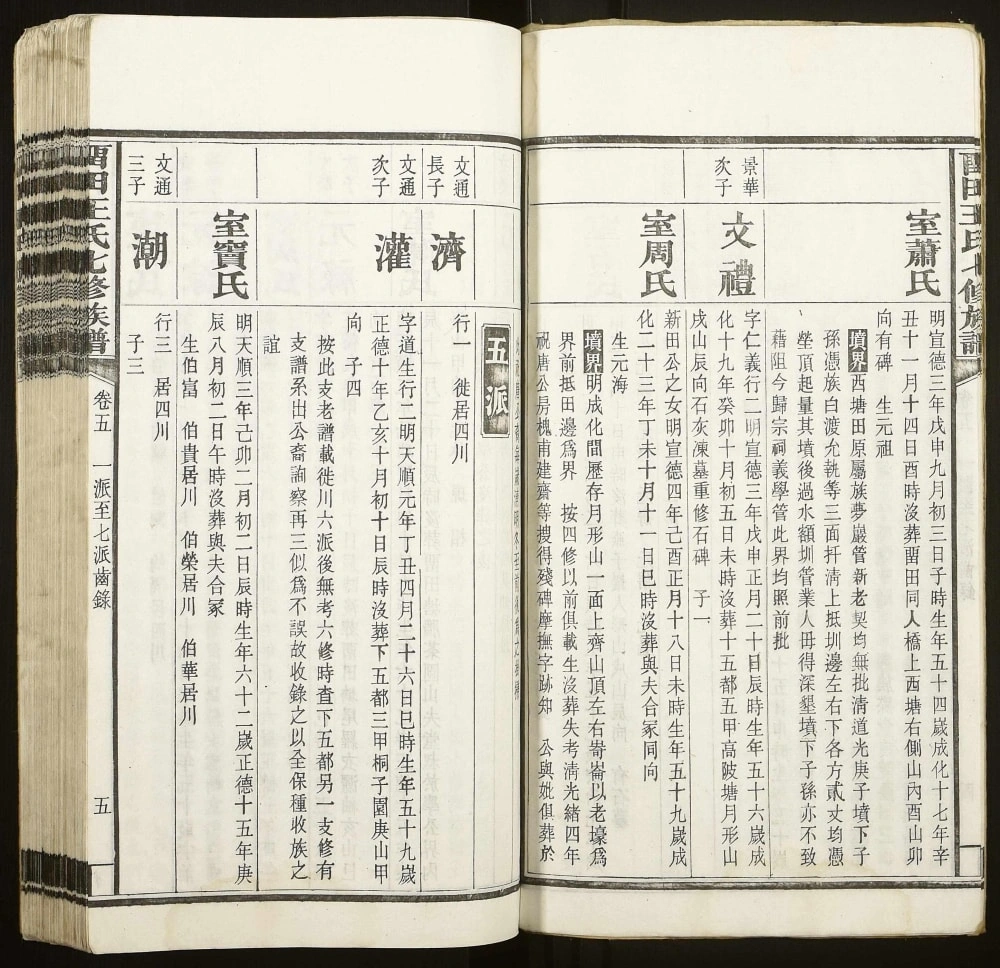 酉田王氏七修族譜
室蕭氏
明宣德三年戊申九月初三日子時生年五十四歲成化十七年辛
丑十一月十四日酉時沒葬畱田同人橋上西塘右側山內酉山卯
向有碑 生元祖
墳界西塘田原屬族夢巖管新老契均無批清道光庚子墳下子
孫憑族白渡允執等三面扦清上抵圳邊左右下各方貳丈均憑
塋頂起量其墳後過水額圳管業人毋得深墾墳下子孫亦不致
藉阻今歸宗祠義學管此界均照前批
景華
次子
文禮
字仁義行二明宣德三年戊申正月二十日辰時生年五十六歲成
化十九年癸卯十月初五日未時沒葬十五都五甲高陂塘月形山
戌山辰向石灰凍墓重修石碑 子一
室周氏
新田公之女明宣德四年己酉正月十八日未時生年五十九歲成
化二十三年丁未十月十一日巳時沒葬與夫合冢同向
生元海
墳界明成化間歷存月形山一面上齊山頂左右崙崙以老壕爲
界前抵田邊爲界 按四修以前俱載生沒葬失考清光緒四年
祝唐公房槐甫建齋等搜得殘碑摩撫字跡知 公與妣俱葬於
五派
文通
長子
濟
行一 徙居四川
文通
次子
灌
字道生行二明天順元年丁丑四月二十六日巳時生年五十九歲
正德十年乙亥十月初十日辰時沒葬下五都三甲桐子園庚山甲
向 子四
按此支老譜載徙川六派後無考六修時查下五都另一支修有
支譜系出公裔詢察再三似爲不誤故收錄之以全保種收族之
誼
室竇氏
明天順三年己卯二月初二日辰時生年六十二歲正德十五年庚
辰八月初二日午時沒葬與夫合冢
生伯富 伯貴居川 伯榮居川 伯華居川
文通
三子
潮
行三 居四川
子三
酉田王氏七修族譜
卷五 一派至七派齒錄
五